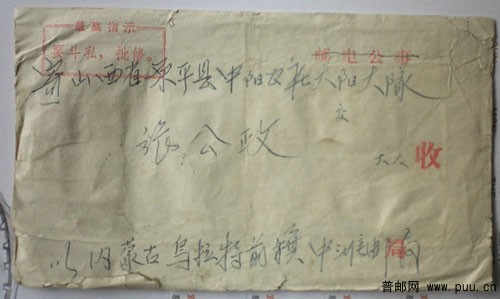 最高指示
要斗私，批修。
邮电公事
寄山西省东平县中阳公社大阳大队
交
张公政
大人 收
从内蒙古乌拉特前旗中 局
普邮网 www.puu.cn